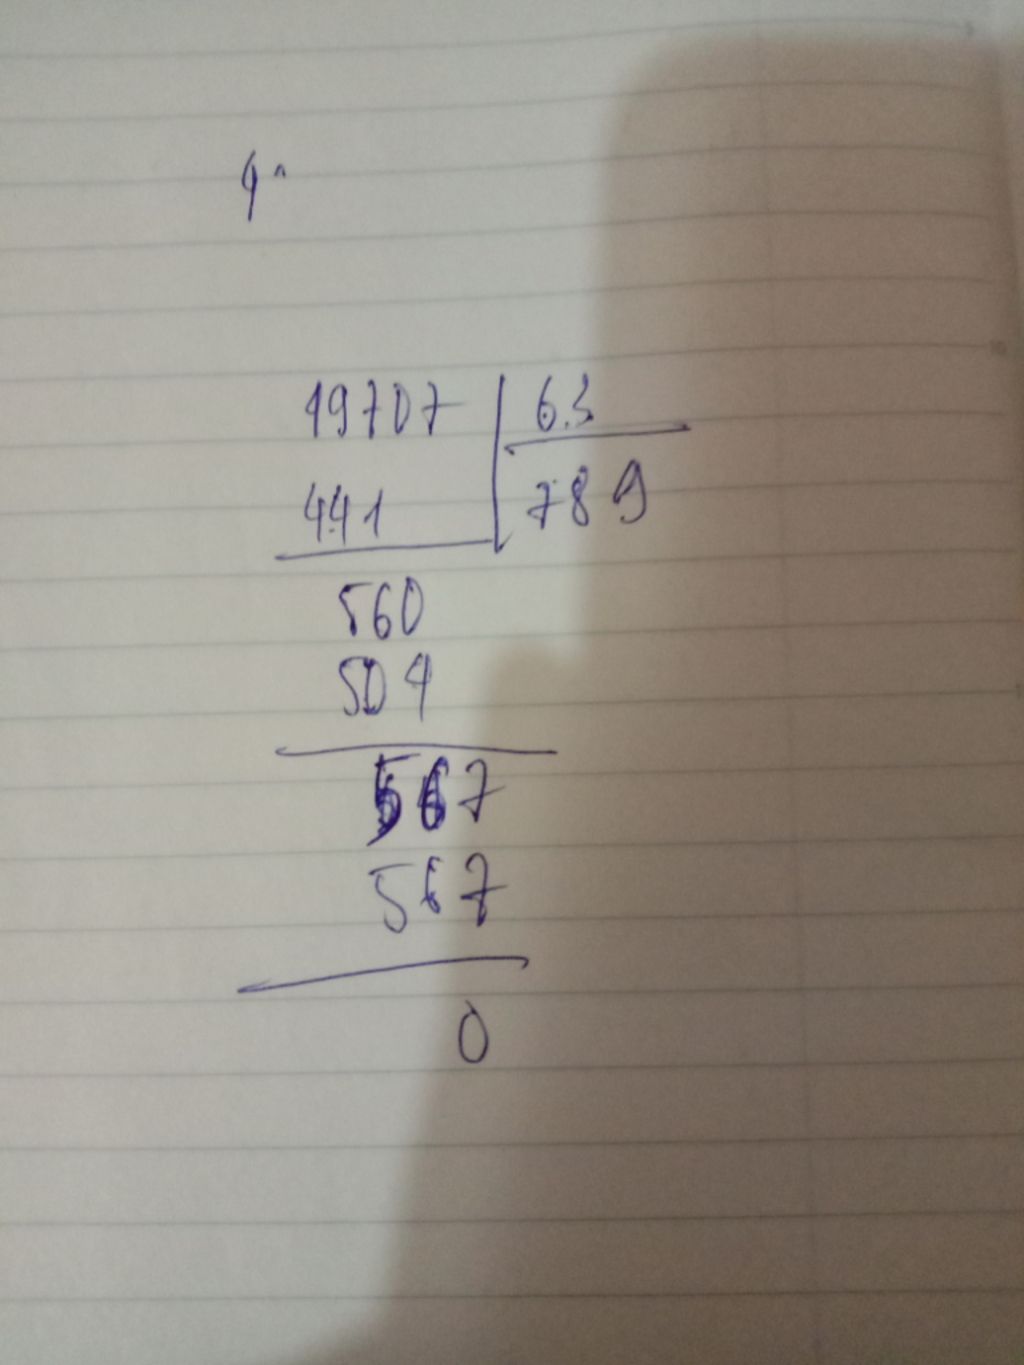 49707 63
441 789
560
504
567
567
0